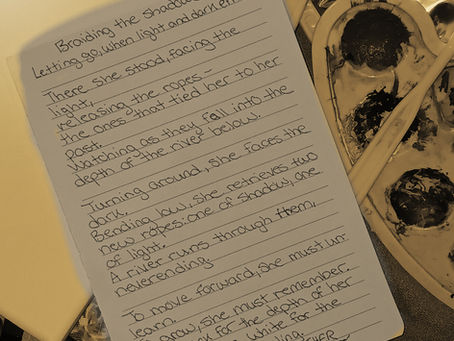 Braiding the shadow
Letting go, when light and dark
There she stood, facing the
light,
releasing the ropes -
the ones that tied her to her
past.
Watching as they fall into the
depth of the river below.
Turning around, she faces the
dark.
Bending low, she retrieves two
new ropes: one of shadow, one
of light.
A river runs through them,
neverending
To move forward, she must un-
learn.
grow, she must remember.
for the depth of her
white for the